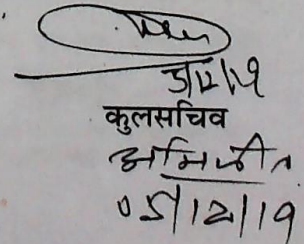 3/12/19
कुलसचिव
अभिजीत
03/12/19